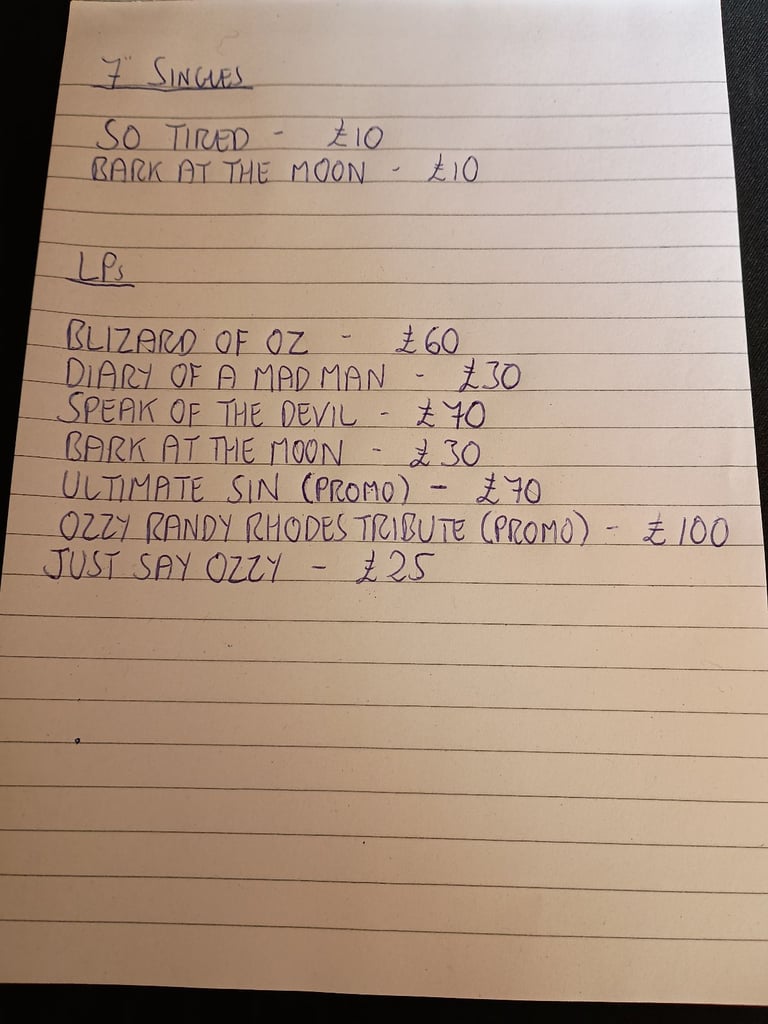 7" SINGLES
SO TIRED - £10
BARK AT THE MOON - £10
LPs
BLIZARD OF OZ - £60
DIARY OF A MAD MAN - £30
SPEAK OF THE DEVIL - £70
BARK AT THE MOON - £30
ULTIMATE SIN (PROMO) - £70
OZZY RANDY RHODES TRIBUTE (PROMO) - £100
JUST SAY OZZY - £25